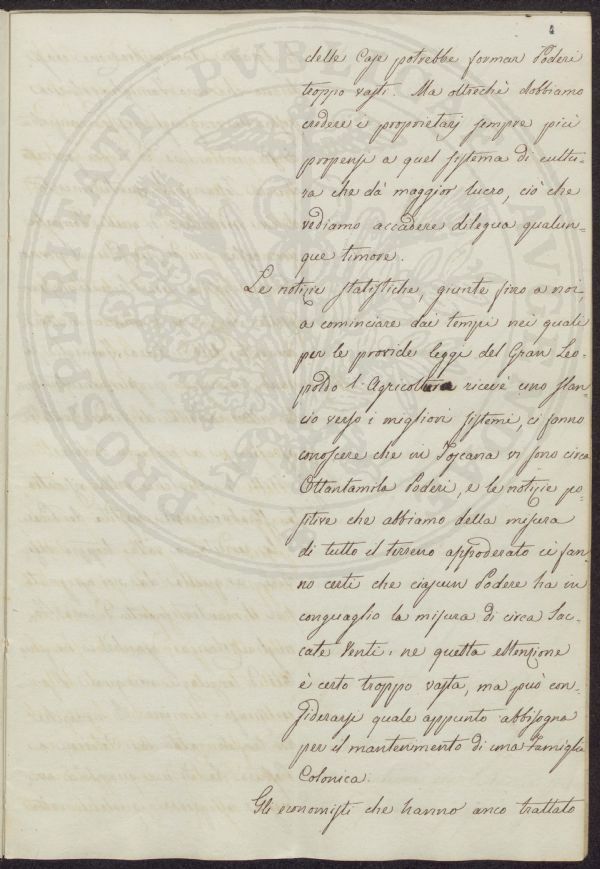 4
delle Case potrebbe formar Poderi
troppo vasti. Ma oltrechè dobbiamo
credere i proprietarj sempre più
propensi a quel sistema di cultu-
ra che dà maggior lucro, ciò che
vediamo accadere dilegua qualun-
que timore.
Le notizie statistiche, giunte fino a noi,
a cominciare dai tempi nei quali
per le provide leggi del Gran Leo-
poldo l'Agricoltura ricevè uno slan-
cio verso i migliori sistemi, ci fanno
conoscere che in Toscana vi sono circa
Ottantamila Poderi, e le notizie po-
sitive che abbiamo della misura
di tutto il terreno appoderato ci fan-
no certi che ciascun Podere ha in
conguaglio la misura di circa Sac-
cate Venti: ne questa estenzione
è certo troppo vasta, ma può con-
siderarsi quale appunto abbisogna
per il mantenimento di una Famiglia
Colonica.
Gli economisti che hanno anco trattato
PROSPERITATI PUBLICAE